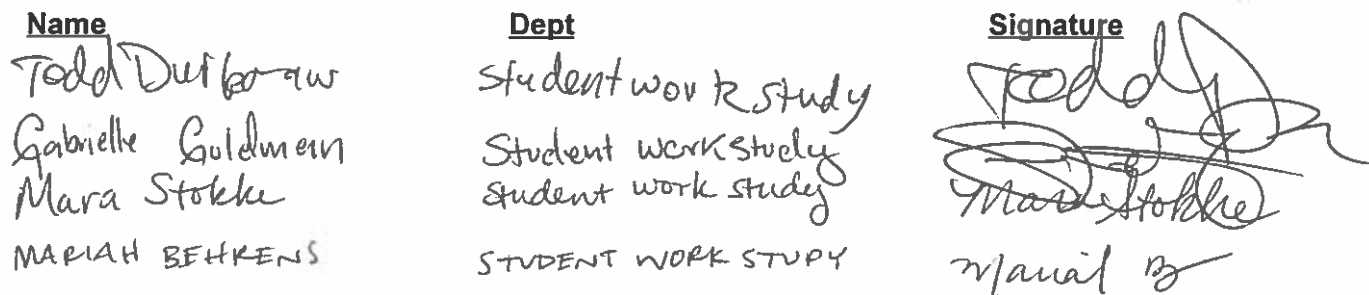 Name Dept Signature
Todd Durboraw Student work study Todd
Gabrielle Goldmann Student workstudy
Mara Stokke Student work study Mara Stokke
MARIAH BEHRENS STUDENT WORK STUDY Mariah B